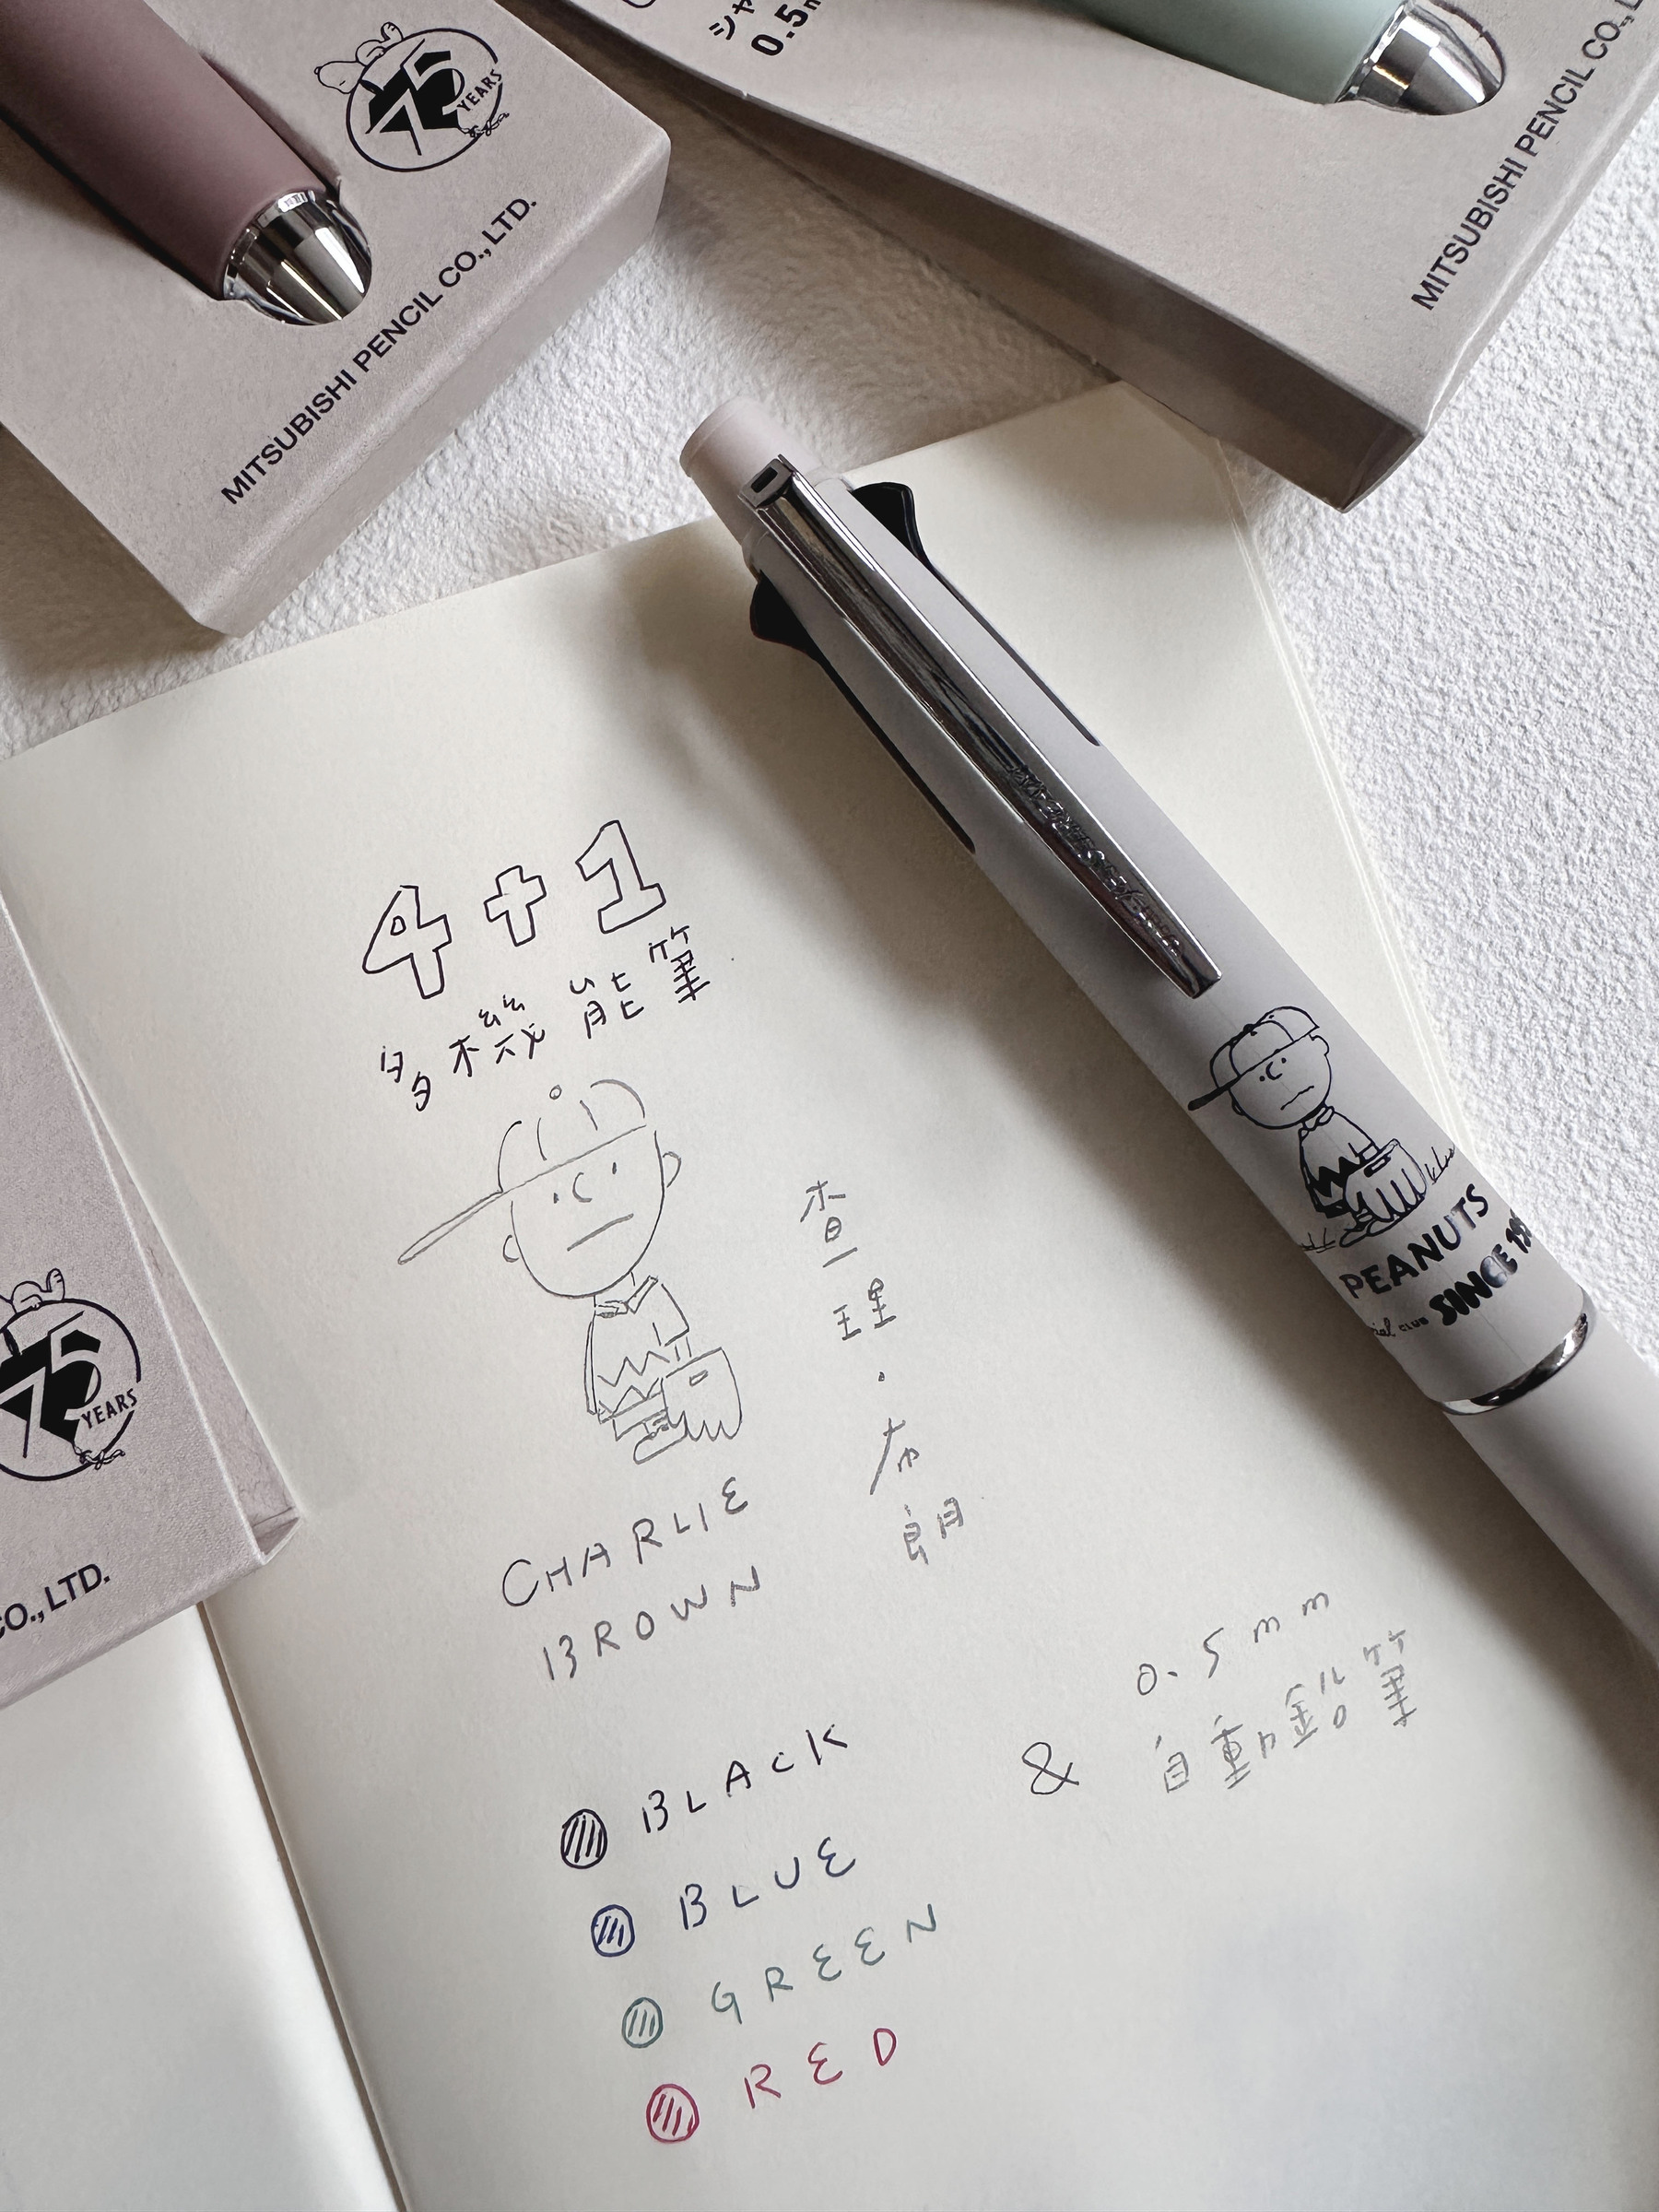 75
YEARS
MITSUBISHI PENCIL CO., LTD.
0.5
MITSUBISHI PENCIL CO.,
4+1
多機能筆
查理·布朗
CHARLIE
BROWN
PEANUTS
SINCE
CLUB
75
YEARS
CO., LTD.
0.5mm
& 自動鉛筆
BLACK
BLUE
GREEN
RED